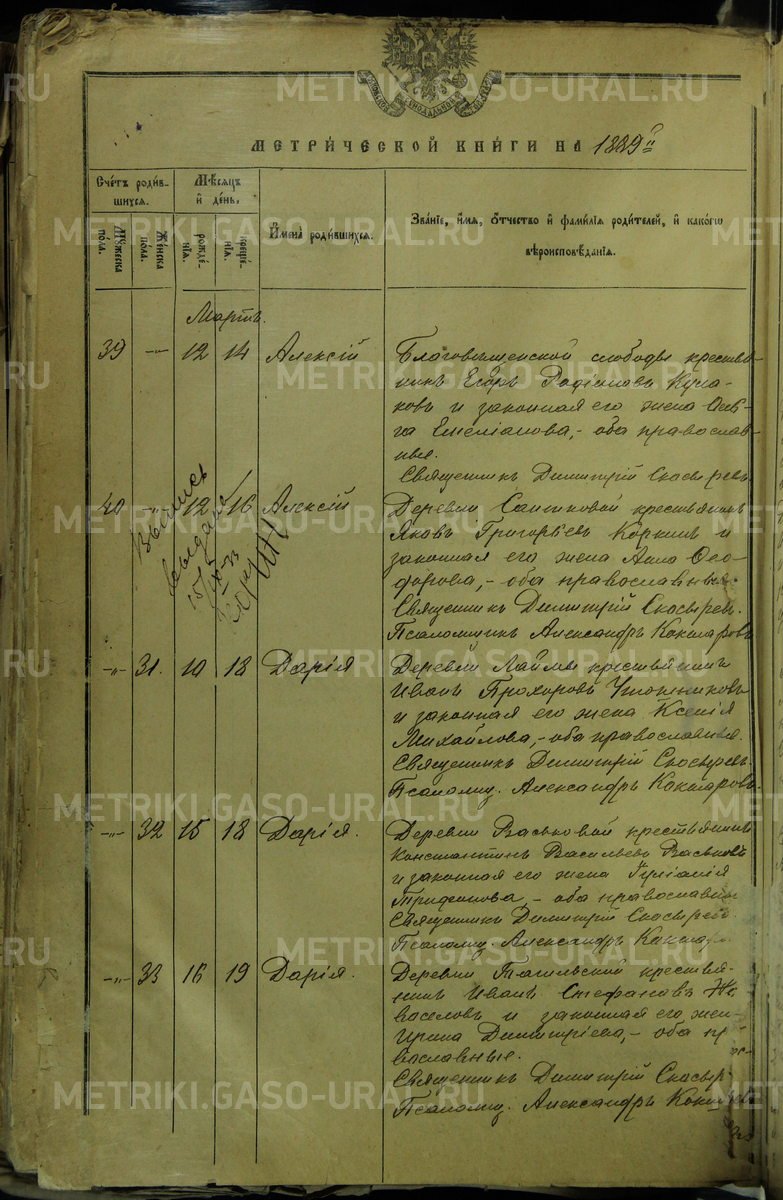 МЕТРИ́ЧЕСКОЙ КНИ́ГИ НА 1889й
Сче́тъ роди́в-
шихся.
Мѣ́сяцъ
и де́нь.
Му́жеска
по́ла.
Же́нска
по́ла.
рожде́-
нія.
креще́-
нія.
Имена̀ роди́вшихся.
Зва́ніе, и́мя, о́тчество и фами́лія роди́телей, и како́го
вѣроисповѣ́данія.
Мартъ.
39 -"- 12 14 Алексій
Благовѣщенской слободы крестья-
нинъ Егоръ Родіоновъ Кула-
ковъ и законная его жена Оль-
га Емеліанова, - оба православ-
ные.
Священникъ Димитрій Скосыревъ
40 -"- 12 16 Алексій
Выпись
выдана
15/
Деревни Саитковой крестьянинъ
Яковъ Григорьевъ Коркинъ и
законная его жена Анна Ѳео-
дорова, - оба православные.
Священникъ Димитрій Скосыревъ.
Псаломщикъ Александръ Кокшаровъ
-"- 31. 10 18 Дарія
Деревни Лаймы крестьянинъ
Иванъ Прохоровъ
и законная его жена Ксенія
Михайлова, - оба православные.
Священникъ Димитрій Скосыревъ.
Псаломщ. Александръ Кокшаровъ.
-"- 32 15 18 Дарія.
Деревни Васьковой крестьянинъ
Константинъ Васильевъ Васьковъ
и законная его жена Іуліанія
Трифонова, - оба православные
Священникъ Димитрій Скосыревъ
Псаломщ. Александръ Кокшаро
-"- 33 16 19 Дарія.
Деревни Тагильской крестья-
нинъ Иванъ Стефановъ Но-
воселовъ и законная его жен
Ирина Димитріева, - оба пр
вославные.
Священникъ Димитрій Скосыр
Псаломщ. Александръ Кокшаровъ
METRIKI.GASO-URAL.RU